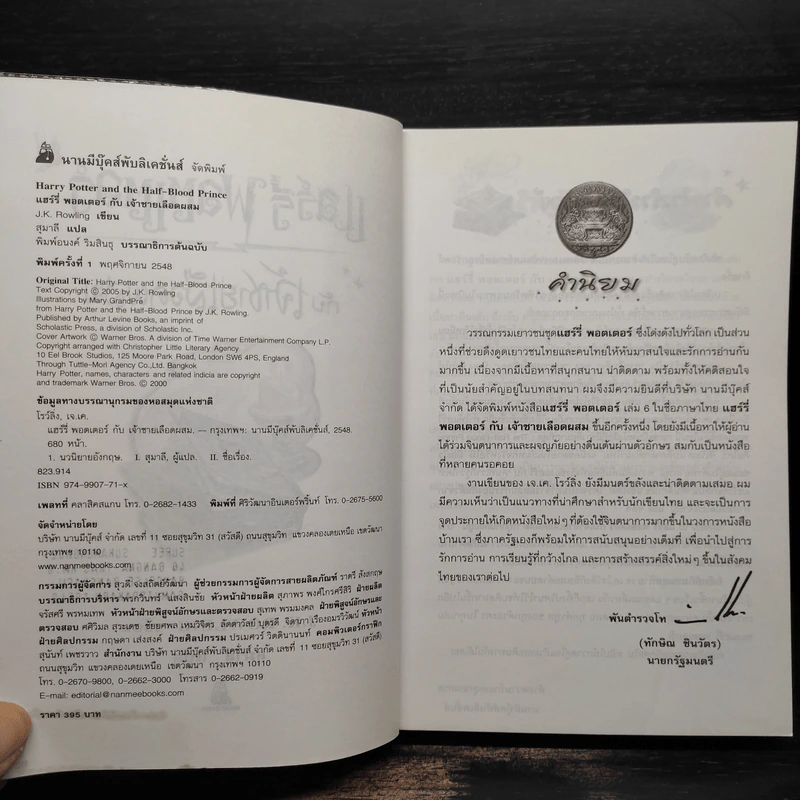 นานมีบุ๊คส์พับลิเคชั่นส์ จัดพิมพ์
Harry Potter and the Half-Blood Prince
แฮร์รี่ พอตเตอร์ กับ เจ้าชายเลือดผสม
J.K. Rowling เขียน
สุมาลี แปล
พิมพ์อนงค์ ริมสินธุ บรรณาธิการต้นฉบับ
พิมพ์ครั้งที่ 1 พฤศจิกายน 2548
Original Title: Harry Potter and the Half-Blood Prince
Text Copyright © 2005 by J.K. Rowling
Illustrations by Mary GrandPré
from Harry Potter and the Half-Blood Prince by J.K. Rowling.
Published by Arthur Levine Books, an imprint of
Scholastic Press, a division of Scholastic Inc.
Cover Artwork © Warner Bros. A division of Time Warner Entertainment Company L.P.
Copyright arranged with Christopher Little Literary Agency
10 Eel Brook Studios, 125 Moore Park Road, London SW6 4PS, England
Through Tuttle-Mori Agency Co.,Ltd. Bangkok.
Harry Potter, names, characters and related indicia are copyright
and trademark Warner Bros. © 2000
ข้อมูลทางบรรณานุกรมของหอสมุดแห่งชาติ
โรว์ลิ่ง, เจ.เค.
แฮร์รี่ พอตเตอร์ กับ เจ้าชายเลือดผสม. — กรุงเทพฯ: นานมีบุ๊คส์พับลิเคชั่นส์, 2548.
680 หน้า.
1. นวนิยายอังกฤษ. I. สุมาลี, ผู้แปล. II. ชื่อเรื่อง.
823.914
ISBN 974-9907-71-x
เพลทที่ คลาสิคสแกน โทร. 0-2682-1433 พิมพ์ที่ ศิริวัฒนาอินเตอร์พริ้นท์ โทร. 0-2675-5600
จัดจำหน่ายโดย
บริษัท นานมีบุ๊คส์ จำกัด เลขที่ 11 ซอยสุขุมวิท 31 (สวัสดี) ถนนสุขุมวิท แขวงคลองเตยเหนือ เขตวัฒนา
กรุงเทพฯ 10110
www.nanmeebooks.com
กรรมการผู้จัดการ สุวดี จงสถิตย์วัฒนา ผู้ช่วยกรรมการผู้จัดการสายผลิตภัณฑ์ ราตรี สังสกฤษ
บรรณาธิการบริหาร พรกวินทร์ แสงสินชัย หัวหน้าฝ่ายผลิต สุภาพร พงศ์ไกรศรีสิริ ฝ่ายผลิต
จรัสศรี พรหมเทพ หัวหน้าฝ่ายพิสูจน์อักษรและตรวจสอบ สุเทพ พรมมงคล ฝ่ายพิสูจน์อักษรและ
ตรวจสอบ ศศิวิมล สุระเดช ชัยยศพล เหมวิจิตร ลัดดาวัลย์ บุตรดี จิดาภา เรืองอมรวิวัฒน์ หัวหน้า
ฝ่ายศิลปกรรม กฤษดา เส่งสงค์ ฝ่ายศิลปกรรม ปรเมศวร์ วิดดินานนท์ คอมพิวเตอร์กราฟิก
สุนันท์ เพชรวาว สำนักงาน บริษัท นานมีบุ๊คส์พับลิเคชั่นส์ จำกัด เลขที่ 11 ซอยสุขุมวิท 31 (สวัสดี)
ถนนสุขุมวิท แขวงคลองเตยเหนือ เขตวัฒนา กรุงเทพฯ 10110
โทร. 0-2670-9800, 0-2662-3000 โทรสาร 0-2662-0919
E-mail: editorial@nanmeebooks.com
ราคา 395 บาท
คำนิยม
วรรณกรรมเยาวชนชุดแฮร์รี่ พอตเตอร์ ซึ่งโด่งดังไปทั่วโลก เป็นส่วน
หนึ่งที่ช่วยดึงดูดเยาวชนไทยและคนไทยให้หันมาสนใจและรักการอ่านกัน
มากขึ้น เนื่องจากมีเนื้อหาที่สนุกสนาน น่าติดตาม พร้อมทั้งให้คติสอนใจ
ที่เป็นนัยสำคัญอยู่ในบทสนทนา ผมจึงมีความยินดีที่บริษัท นานมีบุ๊คส์
จำกัด ได้จัดพิมพ์หนังสือแฮร์รี่ พอตเตอร์ เล่ม 6 ในชื่อภาษาไทย แฮร์รี่
พอตเตอร์ กับ เจ้าชายเลือดผสม ขึ้นอีกครั้งหนึ่ง โดยยังมีเนื้อหาให้ผู้อ่าน
ได้ร่วมจินตนาการและผจญภัยอย่างตื่นเต้นผ่านตัวอักษร สมกับเป็นหนังสือ
ที่หลายคนรอคอย
งานเขียนของ เจ.เค. โรว์ลิ่ง ยังมีมนตร์ขลังและน่าติดตามเสมอ ผม
มีความเห็นว่าเป็นแนวทางที่น่าศึกษาสำหรับนักเขียนไทย และจะเป็นการ
จุดประกายให้เกิดหนังสือใหม่ๆ ที่ต้องใช้จินตนาการมากขึ้นในวงการหนังสือ
บ้านเรา ซึ่งภาครัฐเองก็พร้อมให้การสนับสนุนอย่างเต็มที่ เพื่อนำไปสู่การ
รักการอ่าน การเรียนรู้ที่กว้างไกล และการสร้างสรรค์สิ่งใหม่ๆ ขึ้นในสังคม
ไทยของเราต่อไป
พันตำรวจโท
(ทักษิณ ชินวัตร)
นายกรัฐมนตรี